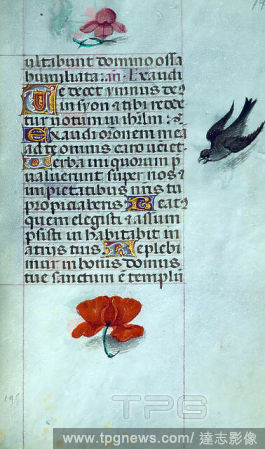 ultabunt domino ossa
humiliata: an. Exaudi
Te decet ymnus de
in syon & tibi reddet
ur votum in ihrlm: &
Exaudi oronem mea
ad te omnis caro veniet.
Verba iniquorum p
valuerunt super nos &
impietatibus nris tu
propiciaberis. Beat
quem elegisti & assum
psisti in habitabit in
atrijs tuis. Replebi
mur in bonis domus
tue sanctum e templu
TPG
www.tpgnews.com / 達志影像